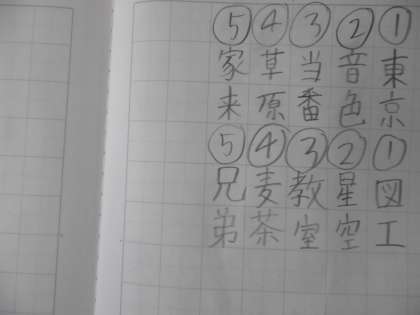 ①東京
②音色
③当番
④草原
⑤家来
①図工
②星空
③教室
④麦茶
⑤兄弟